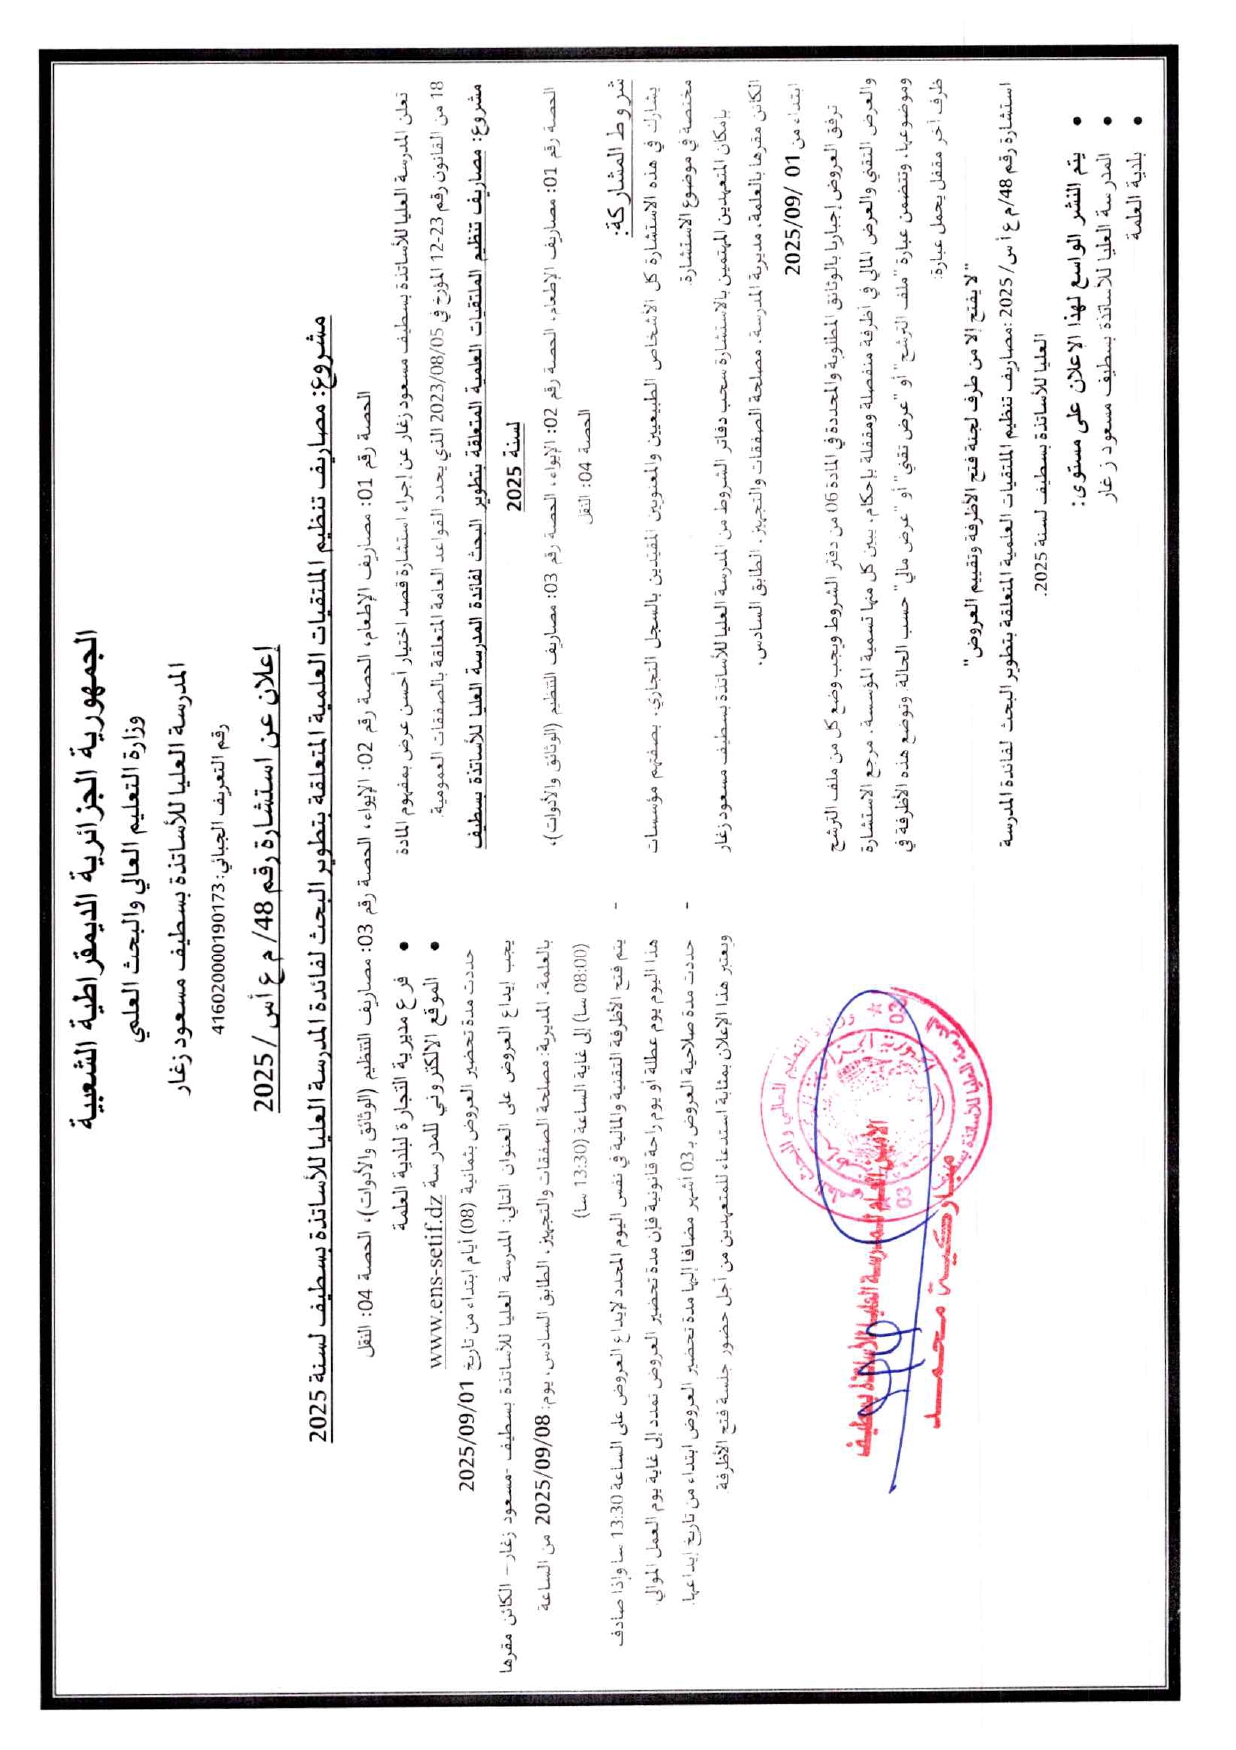 الجمهورية الجزائرية الديمقراطية الشعبية
وزارة التعليم العالي والبحث العلمي
المدرسة العليا للأساتذة بسطيف مسعود زغار
رقم التعريف الجبائي: 416020000190173
إعلان عن استشارة رقم 48/ م ع أ س / 2025
مشروع: مصاريف تنظيم الملتقيات العلمية المتعلقة بتطوير البحث لفائدة المدرسة العليا للأساتذة بسطيف لسنة 2025
الحصة رقم 01: مصاريف الإطعام، الحصة رقم 02: الإيواء، الحصة رقم 03: مصاريف التنظيم (الوثائق والأدوات)، الحصة 04: النقل
تعلن المدرسة العليا للأساتذة بسطيف مسعود زغار عن إجراء استشارة قصد اختيار أحسن عرض بمفهوم المادة
18 من القانون رقم 23-12 المؤرخ في 2023/08/05 الذي يحدد القواعد العامة المتعلقة بالصفقات العمومية.
مشروع: مصاريف تنظيم الملتقيات العلمية المتعلقة بتطوير البحث لفائدة المدرسة العليا للأساتذة بسطيف
لسنة 2025
الحصة رقم 01: مصاريف الإطعام، الحصة رقم 02: الإيواء، الحصة رقم 03: مصاريف التنظيم (الوثائق والأدوات)،
الحصة 04: النقل
شروط المشاركة:
يشارك في هذه الاستشارة كل الأشخاص الطبيعيين والمعنويين المقيدين بالسجل التجاري، بصفتهم مؤسسات
مختصة في موضوع الاستشارة.
بإمكان المتعهدين المهتمين بالاستشارة سحب دفاتر الشروط من المدرسة العليا للأساتذة بسطيف مسعود زغار
الكائن مقرها بالعلمة، مديرية المدرسة، مصلحة الصفقات والتجهيز، الطابق السادس،
ابتداء من 01 /2025/09
ترفق العروض إجباريا بالوثائق المطلوبة والمحددة في المادة 06 من دفتر الشروط ويجب وضع كل من ملف الترشح
والعرض التقني والعرض المالي في أظرفة منفصلة ومقفلة بإحكام، يبين كل منها تسمية المؤسسة، مرجع الاستشارة
وموضوعها، وتتضمن عبارة "ملف الترشح" أو "عرض تقني" أو "عرض مالي" حسب الحالة. وتوضع هذه الأظرفة في
ظرف آخر مقفل يحمل عبارة:
"لا يفتح إلا من طرف لجنة فتح الأظرفة وتقييم العروض"
استشارة رقم 48/م ع أ س/ 2025 :مصاريف تنظيم الملتقيات العلمية المتعلقة بتطوير البحث لفائدة المدرسة
العليا للأساتذة بسطيف لسنة 2025.
• يتم النشر الواسع لهذا الاعلان على مستوى:
• المدرسة العليا للأساتذة بسطيف مسعود زغار
• بلدية العلمة
• فرع مديرية التجارة لبلدية العلمة
• الموقع الالكتروني للمدرسة www.ens-setif.dz
حددت مدة تحضير العروض بثمانية (08) أيام ابتداء من تاريخ 2025/09/01
يجب إيداع العروض على العنوان التالي: المدرسة العليا للأساتذة بسطيف -مسعود زغار– الكائن مقرها
بالعلمة، المديرية: مصلحة الصفقات والتجهيز، الطابق السادس، يوم: 2025/09/08 من الساعة
(08:00 سا) إلى غاية الساعة (13:30 سا)
- يتم فتح الأظرفة التقنية والمالية في نفس اليوم المحدد لإيداع العروض على الساعة 13:30 سا وإذا صادف
هذا اليوم يوم عطلة أو يوم راحة قانونية فإن مدة تحضير العروض تمدد إلى غاية يوم العمل الموالي.
- حددت مدة صلاحية العروض بـ 03 أشهر مضافا إليها مدة تحضير العروض ابتداء من تاريخ إيداعها.
ويعتبر هذا الإعلان بمثابة استدعاء للمتعهدين من أجل حضور جلسة فتح الأظرفة
الأمين العام للمدرسة العليا للأساتذة بسطيف
مباركية محمد